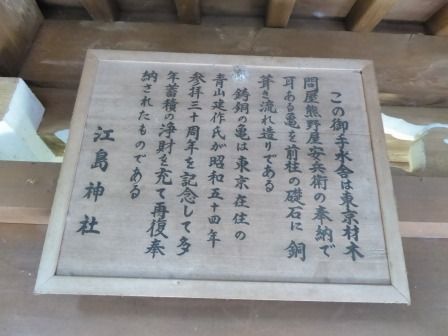 この御手水舎は東京材木
問屋熊野屋安兵衛の奉納で
耳ある亀を前柱の礎石に銅
葺き流れ造りである
鋳銅の亀は東京在住の
青山建作氏が昭和五十四年
参拝三十周年を記念して多
年蓄積の浄財を充て再復奉
納されたものである
江島神社